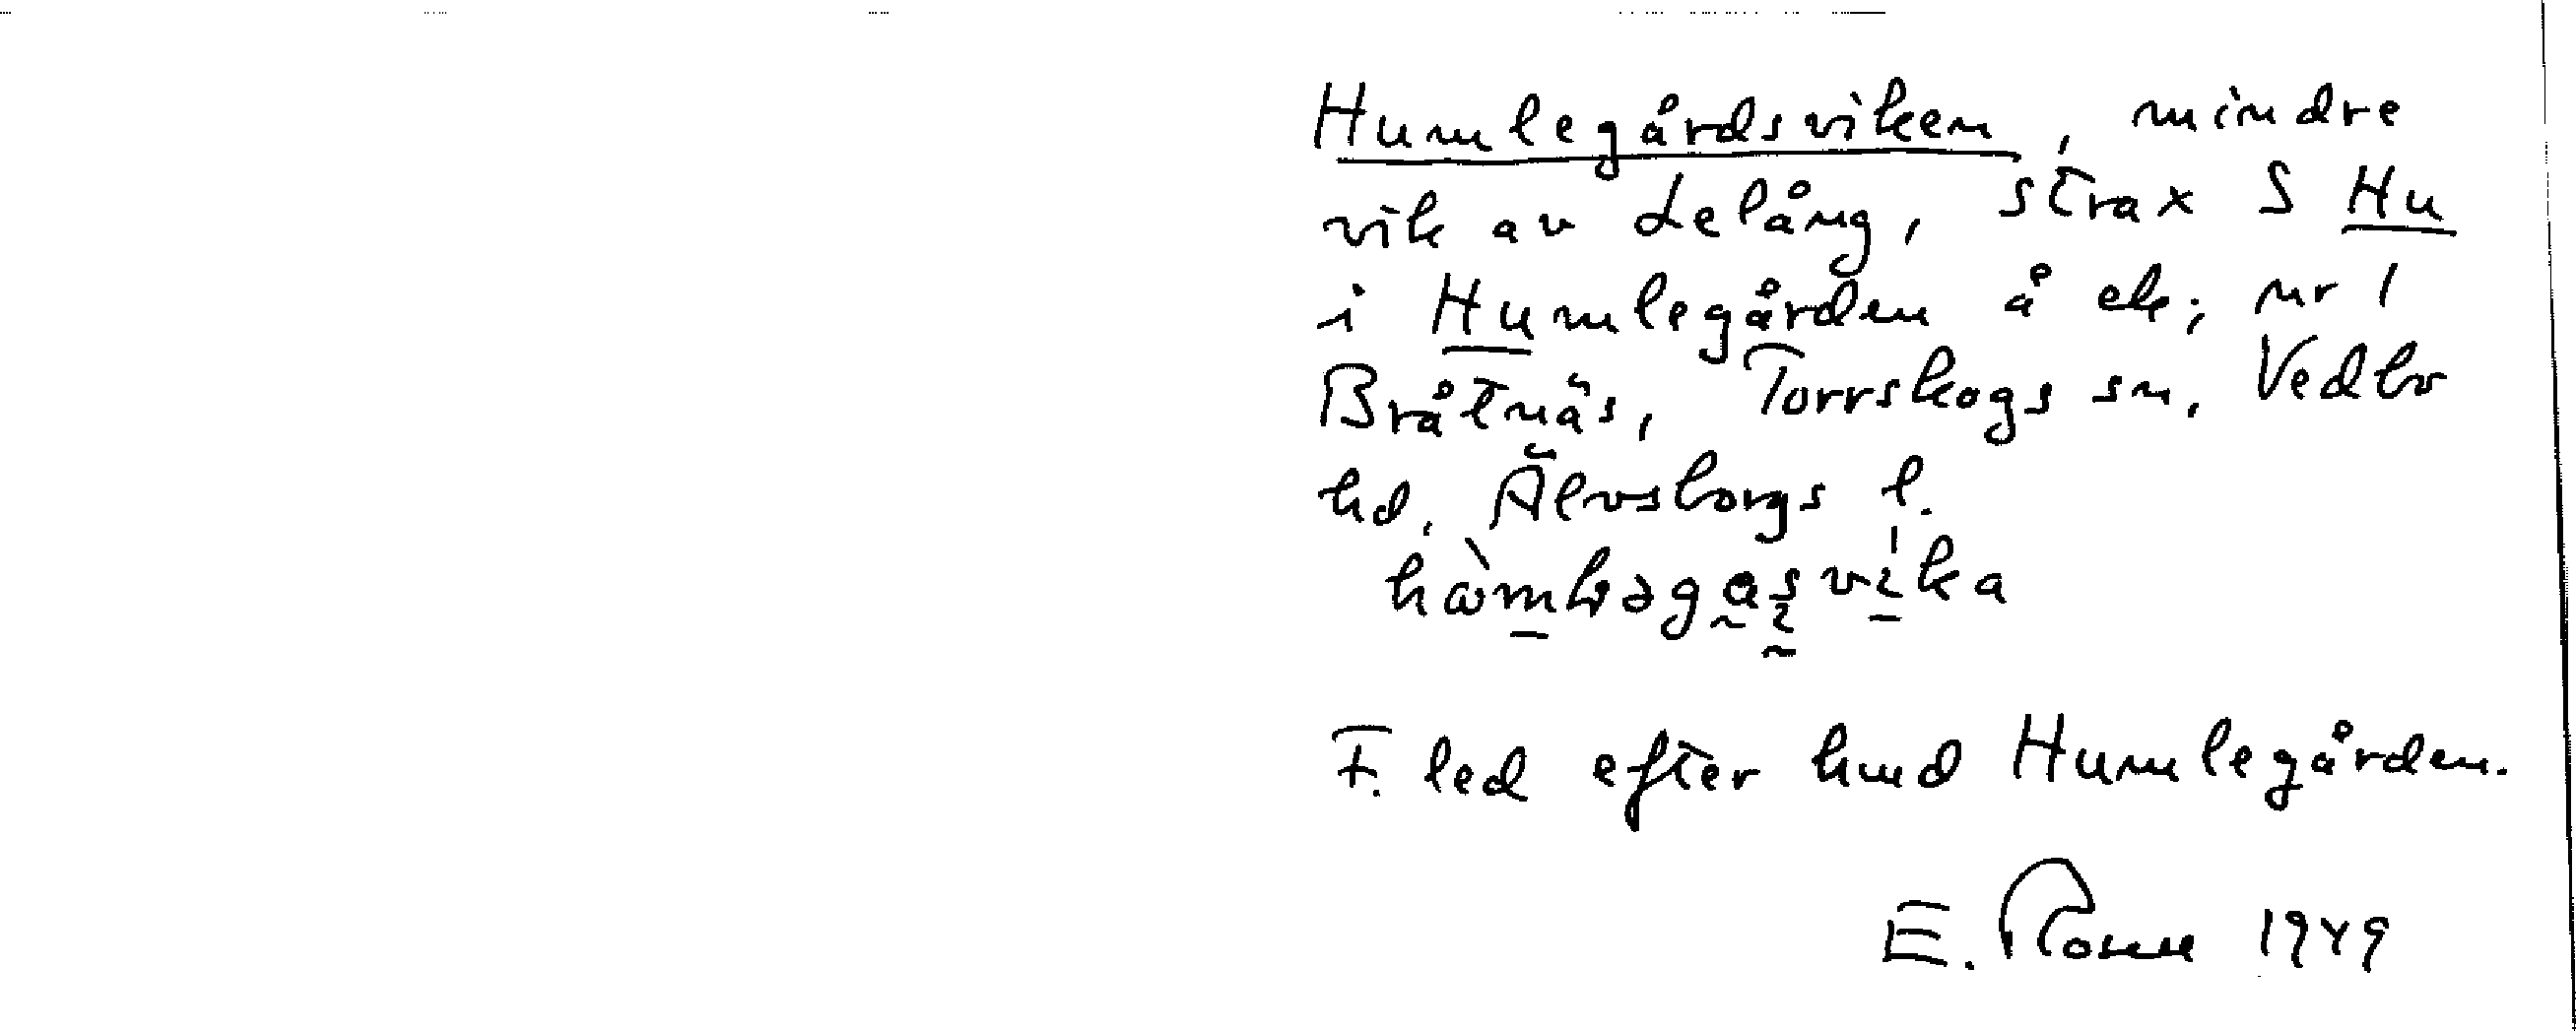 Humlegårdsviken, mindre
vik av Lelång, strax S Hu
i Humlegården å ek; nr 1
Bråtnäs, Torrskogs sn, Vedbo
hd, Älvsborgs l.
F. led efter hmd Humlegården.
E. Rosell 1949